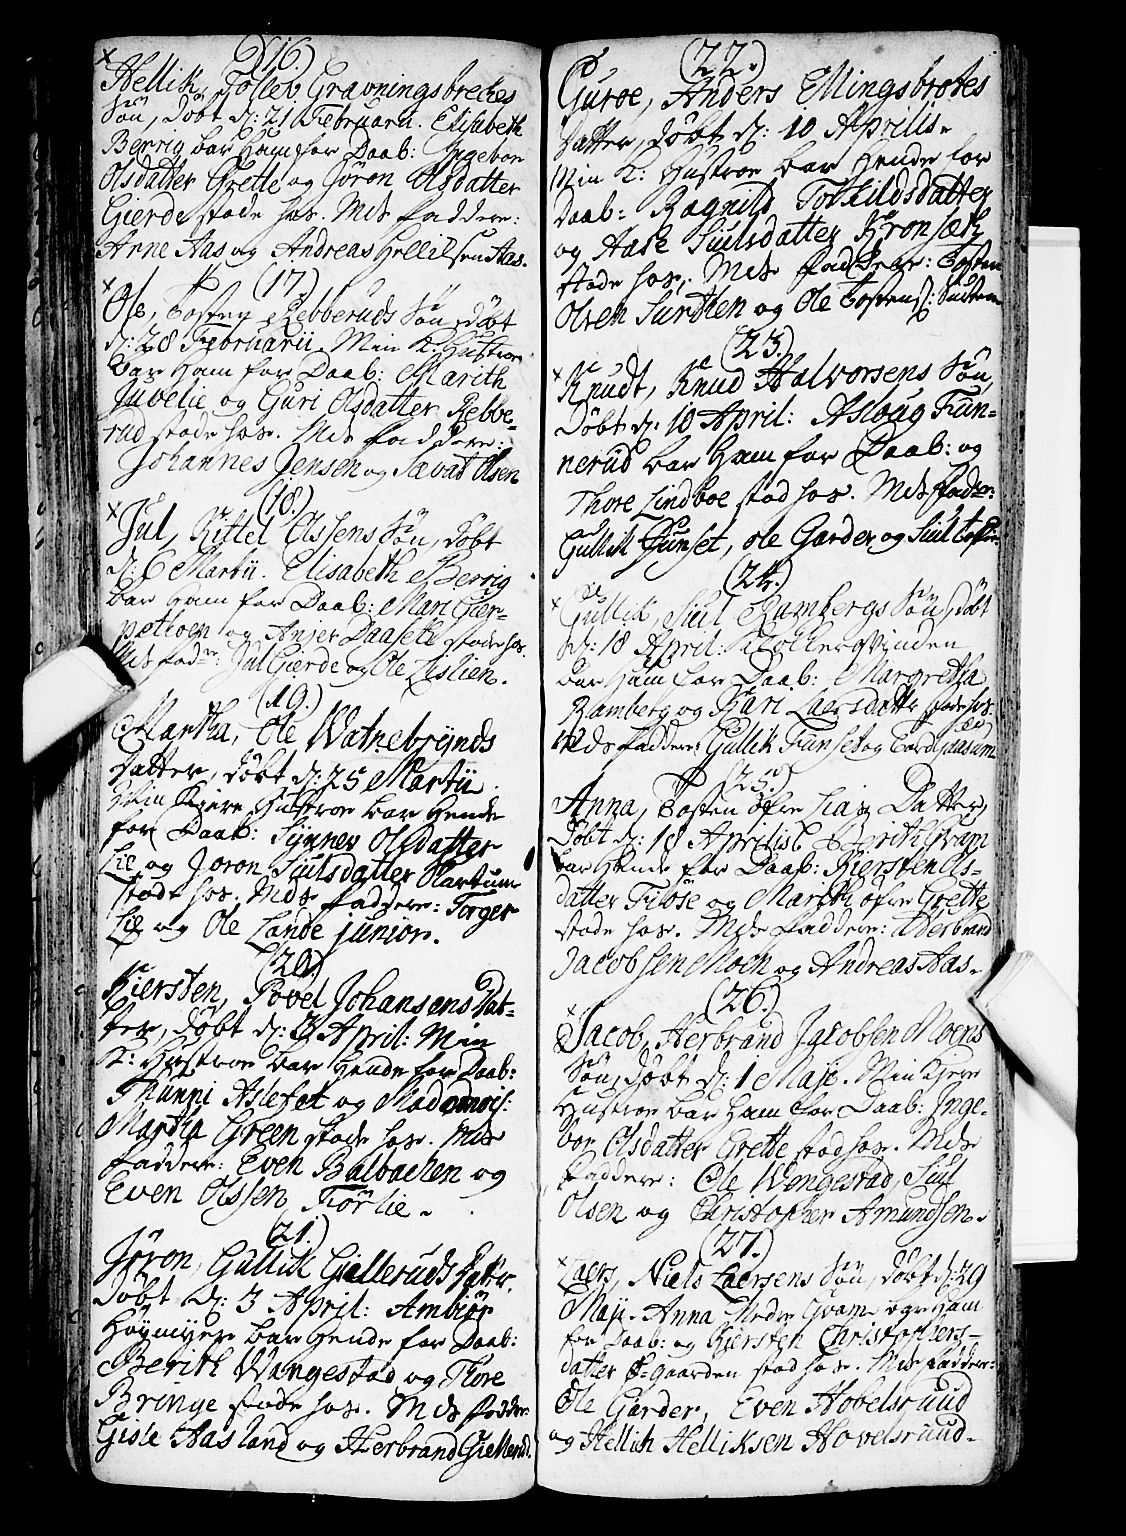 (16.)
Hellik, Tollev Gravningsbreckes
Søn, døbt d: 21 Februarii. Elisabeth
Berrig bar Ham for Daab: Ingebor
Olsdatter Grette og Jøron Olsdatter
Gierde stode hos. Mds faddere:
Anne Aas og Andreas Helliksen Aas.
(17.)
Ole, Tosten Rebberuds Søn, døbt
d: 28 Februarii. Min K: Hustroe
bar Ham for Daab: Marith
Juvelie og Guri Olsdatter Rebbe-
rud stode hos. Mds faddere:
Johannes Jensen og Sævat Olsen
(18.)
Jul, Kittel Olssens Søn, døbt
d: 6 Martii. Elisabeth Berrig
bar Ham for Daab: Mari
og Daasett stode hos.
Mds fadre: Jul Gierde og Ole Leslien.
(19.)
Martha, Ole Watnebrynds
Datter, døbt d: 25 Martii.
Min Kjere Hustroe bar Hende
for Daab: Synnev Olsdatter
Lie og Joron Siulsdatter Hartum
stode hos. Mds faddere: Torger
Lie og Ole Lande junior.
(20.)
Kiersten, Povel Johansens Dat-
ter, døbt d: 3 April: Min
K: Hustroe bar Hende for Daab:
Thunni Aslefet og Madamois:
Martha Green stode hos. Mds
faddere: Even Balbachen og
Even Olssen Førlie.
(21.)
Jøron, Gullik Gielleruds Datter.
døbt d: 3 April: Ambiør
Høymyer bar Hende for Daab:
Berith Wangestad og Thore
Bringe stode hos. Mds fadder
Gisle Aasland og Herbrand Giellerud.
(22.)
Guroe, Anders Ellingsbrotes
Datter, døbt d: 10 Aprilis.
Min K: Hustroe bar Hende for
Daab: Ragnild Torkildsdatter
og Aase Siulsdatter Kronsæth
stode hos. Mds faddere: Tosten
Olsen Surdten og Ole Tostens:
(23.)
Knudt, Knud Halvorsens Søn,
Døbt d: 10 April: Aslaug Fun-
nerud bar Ham for Daab: og
Thore Lindboe stod hos. Mds fadre:
Gullik Funset, Ole Garder og Siul
(24.)
Gullik, Siul Rambergs Søn, døbt
d: 18 April: Klokkerqvinden
bar Ham for Daab: Margretha
Ramberg og Kari Laersdatter stode hos.
Mds faddere: Gullik Funset og Tord
(25.)
Anna, Tosten øfre Lia's Datter,
døbt d: 18 Aprilis Berith Qvam
bar Hende for Daab: Kiersten Ols-
datter Filøse og Marith øfre Grette
stode hos. Mds faddere: Herbrand
Jacobsen Moen og Andreas Aas.
(26.)
Jacob, Herbrand Jacobsen Moens
Søn, døbt d: 1 Maji. Min Kjere
Hustroe bar Ham for Daab: Inge-
bor Olsdatter Grette stod hos. Mds
faddere: Ole Wengestad, Siul
Olsen og Christopher Amundsen.
(27.)
Laers, Niels Laersens Søn, døbt d: 29
Maji. Anna Nedre Qvam bar Ham
for Daab: og Kiersten Christophers-
datter Ø-gaarden stod hos. Mds fadder:
Ole Garder, Even Hovelsruud
og Hellich Helliksen Hovelsruud.